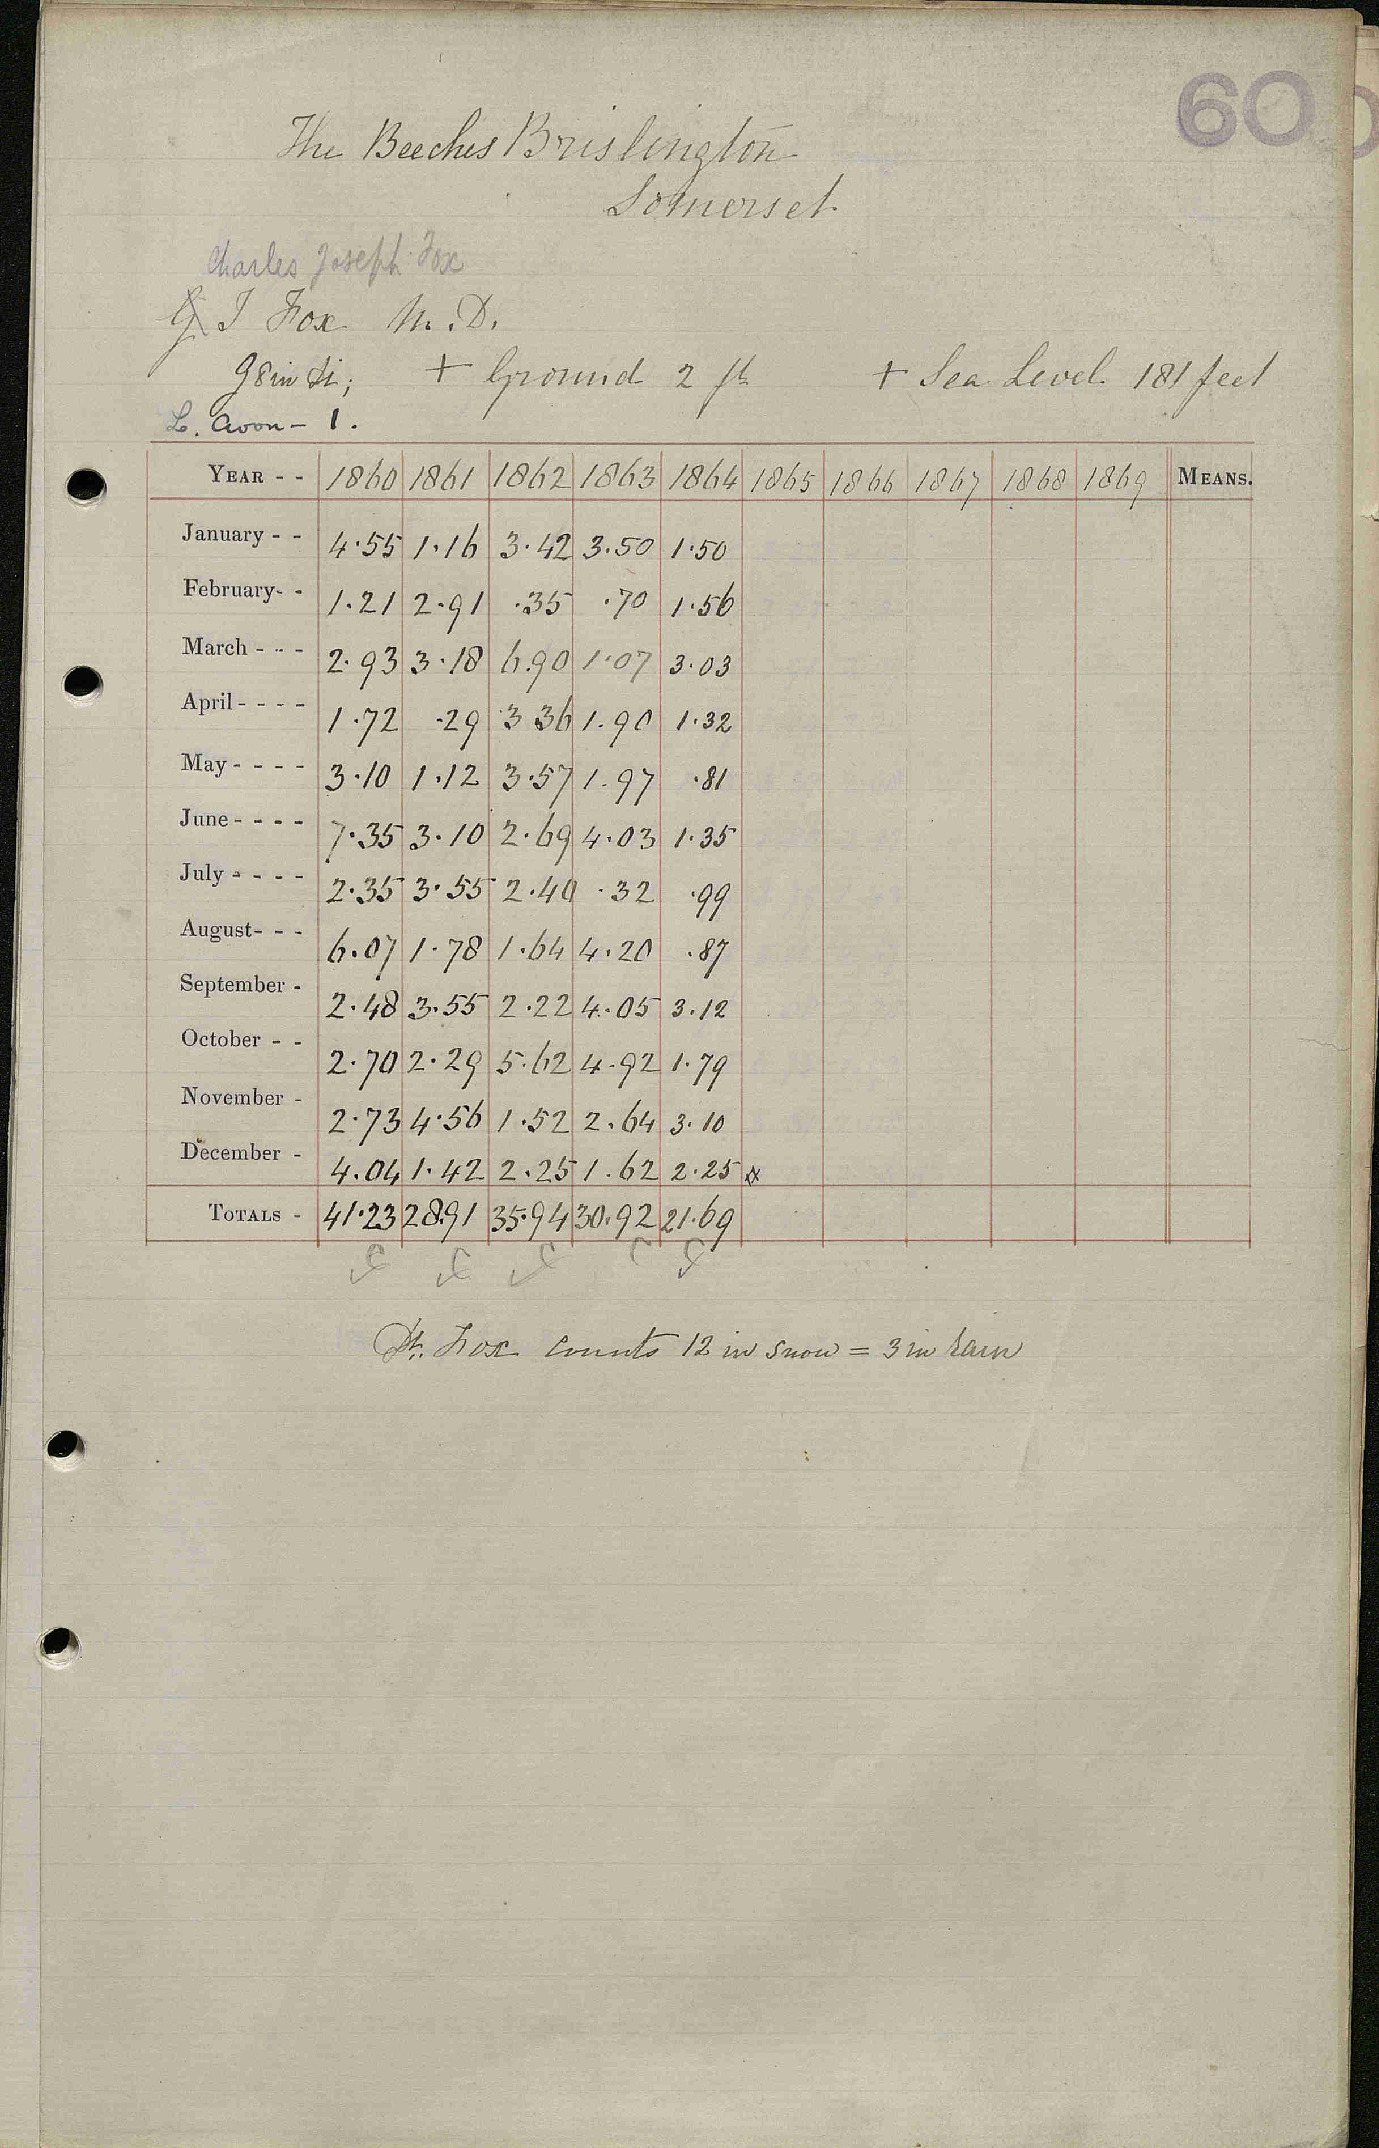 60
The Beeches Brislington
Somerset
Charles Joseph Fox
J Fox M.D.
G 8 in di; + Ground 2 ft + Sea Level 181 feet
L. Avon - 1.
YEAR - - 1860 1861 1862 1863 1864 1865 1866 1867 1868 1869 MEANS.
January - - 4.55 1.16 3.42 3.50 1.50
February - - 1.21 2.91 .35 .70 1.56
March - - - 2.93 3.18 6.90 1.07 3.03
April - - - - 1.72 .29 3.36 1.90 1.32
May - - - - 3.10 1.12 3.57 1.97 .81
June - - - - 7.35 3.10 2.69 4.03 1.35
July - - - - 2.35 3.55 2.40 .32 .99
August - - - 6.07 1.78 1.64 4.20 .87
September - 2.48 3.55 2.22 4.05 3.12
October - - 2.70 2.29 5.62 4.92 1.79
November - 2.73 4.56 1.52 2.64 3.10
December - 4.04 1.42 2.25 1.62 2.25
TOTALS - 41.23 28.91 35.94 30.92 21.69
Dr. Fox counts 12 in snow = 3 in rain